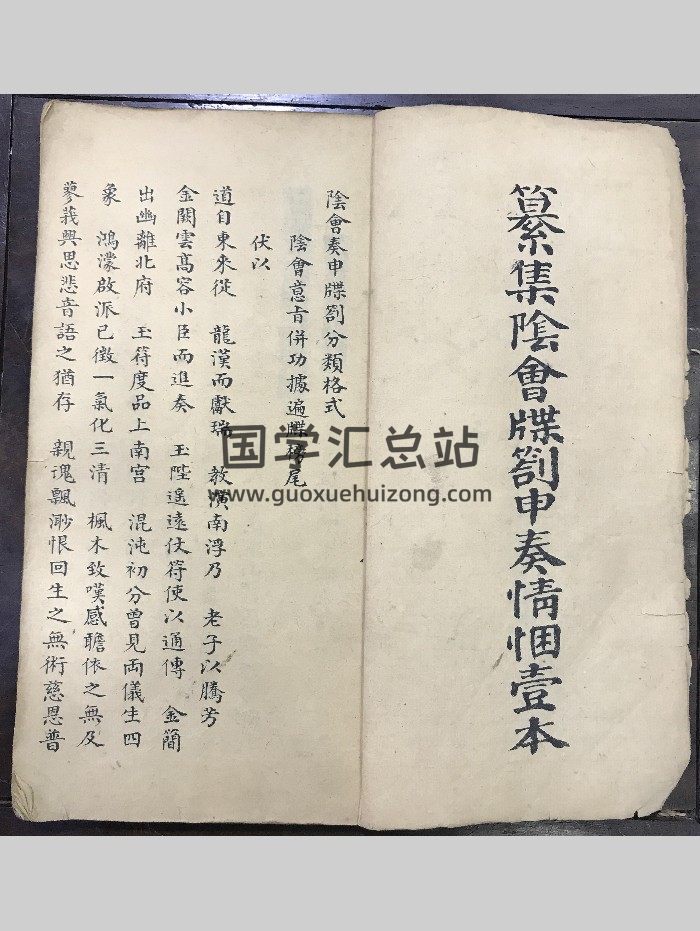 纂集陰會牒劄申奏情悃壹本
陰會奏申牒劄分類格式
陰會意旨併功據遍牒榜尾
伏以
道自東來從 龍漢而獻瑞 教演南浮乃 老子以騰芳
金闕雲高容小臣而進奏 玉陛遙遠仗符使以通傳 金簡
出幽離北府 玉符度品上南宮 混沌初分曾見両儀生四
象 鴻濛啟派已徵一氣化三清 楓木致嘆感瞻依之無及
蓼莪興思悲音語之猶存 親魂飄渺恨回生之無術慈恩普
国学汇总站
www.guoxuehuizong.com